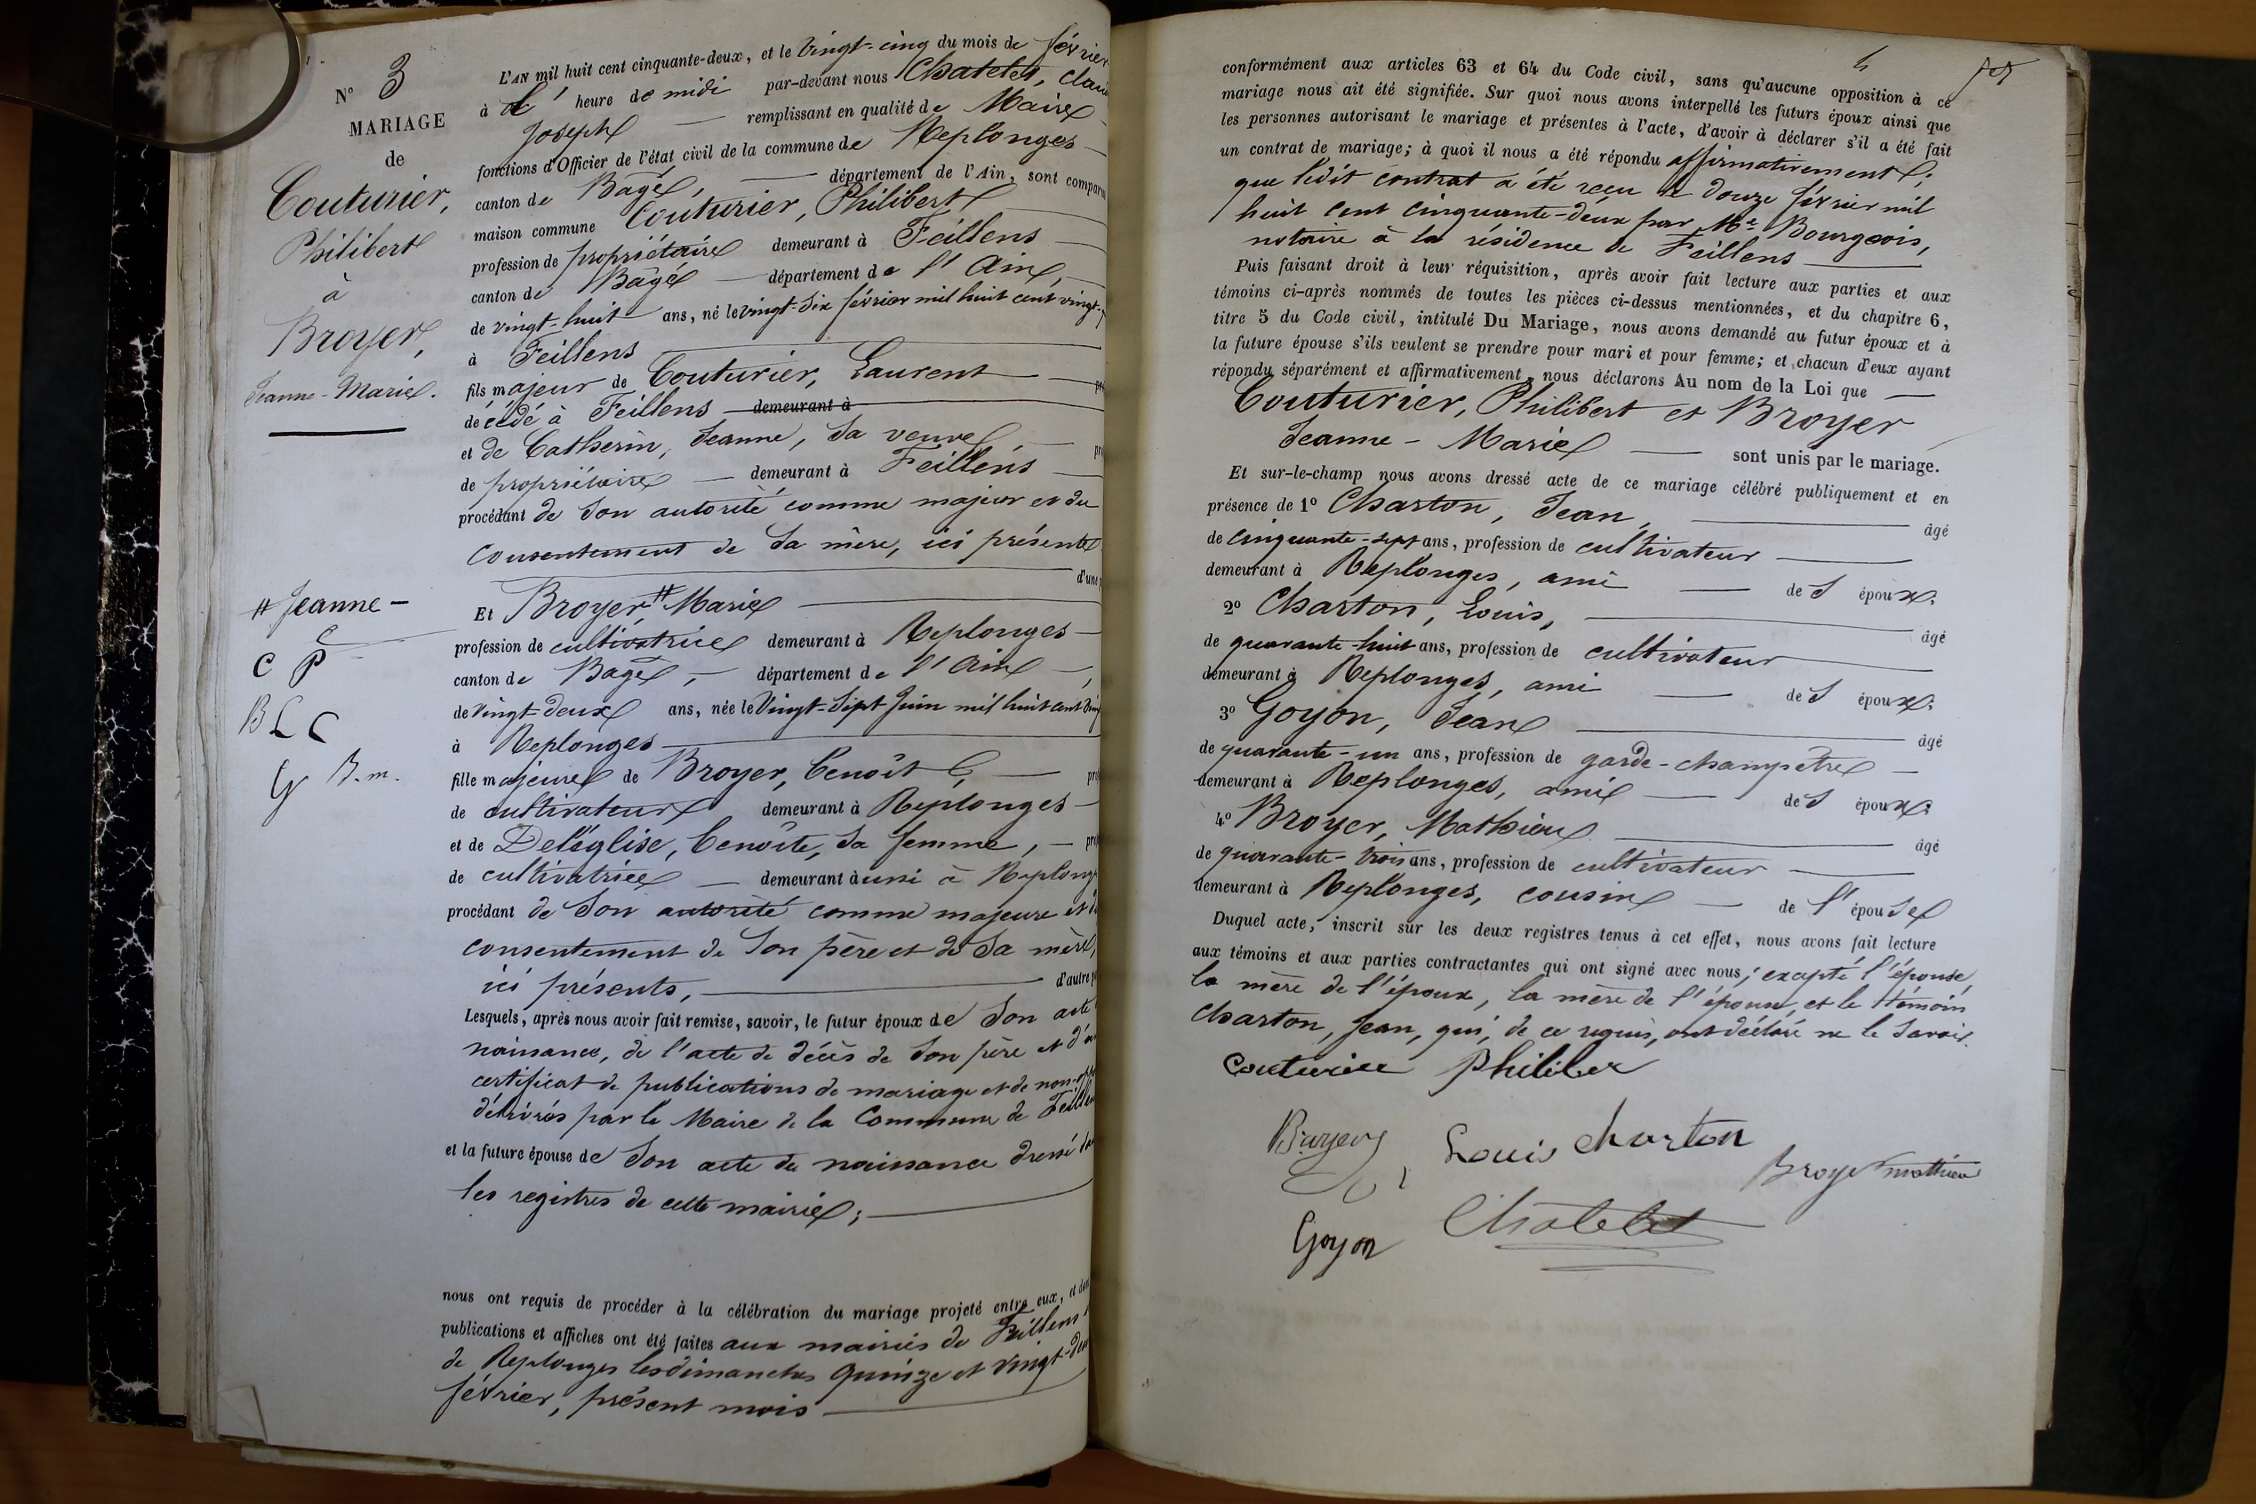 N° 3
MARIAGE
de
Couturier,
Philibert
à
Broyer,
Jeanne-Marie.
# Jeanne-
C P
B L C
G B. m.
L'AN mil huit cent cinquante-deux, et le Vingt-cinq du mois de février
à l' heure de midi par-devant nous Chatelet,
Joseph — remplissant en qualité de Maire
fonctions d'Officier de l'état civil de la commune de Replonges —
canton de Bagé, — département de l'Ain, sont
maison commune Couturier, Philibert
profession de propriétaire demeurant à Feillens —
canton de Bagé — département de l'Ain, —
de vingt-huit ans, né le vingt-six février mil huit cent
à Feillens
fils majeur de Couturier, Laurent —
décédé à Feillens — demeurant à
et de Catherin, Jeanne, sa veuve, —
de propriétaire — demeurant à Feillens —
procédant de son autorité comme majeur et du
consentement de sa mère, ici présente
d'une
Et Broyer, # Marie
profession de cultivatrice demeurant à Replonges —
canton de Bagé, — département de l'Ain —,
de Vingt-deux ans, née le Vingt-Sept Juin mil huit cent
à Replonges
fille majeure de Broyer, Benoît —
de cultivateur demeurant à Replonges —
et de Deléglise, Benoîte, sa femme, —
de cultivatrice — demeurant à
procédant de son autorité comme majeure et
consentement de son père et de sa mère,
ici présents, — d'autre
Lesquels, après nous avoir fait remise, savoir, le futur époux de son acte
naissance, de l'acte de décès de son père et
certificat de publications de mariage et de
délivrés par le Maire de la Commune de
et la future épouse de son acte de naissance dressé
les registres de cette mairie; —
nous ont requis de procéder à la célébration du mariage projeté entre eux, et
publications et affiches ont été faites aux mairies de Feillens
de Replonges les dimanches quinze et
février, présent mois —
conformément aux articles 63 et 64 du Code civil, sans qu'aucune opposition à ce
mariage nous ait été signifiée. Sur quoi nous avons interpellé les futurs époux ainsi que
les personnes autorisant le mariage et présentes à l'acte, d'avoir à déclarer s'il a été fait
un contrat de mariage; à quoi il nous a été répondu affirmativement;
que ledit contrat a été reçu le douze février mil
huit cent cinquante-deux par Me Bourgeois,
notaire à la résidence de Feillens —
Puis faisant droit à leur réquisition, après avoir fait lecture aux parties et aux
témoins ci-après nommés de toutes les pièces ci-dessus mentionnées, et du chapitre 6,
titre 5 du Code civil, intitulé Du Mariage, nous avons demandé au futur époux et à
la future épouse s'ils veulent se prendre pour mari et pour femme; et chacun d'eux ayant
répondu séparément et affirmativement, nous déclarons Au nom de la Loi que —
Couturier, Philibert et Broyer
Jeanne-Marie — sont unis par le mariage.
Et sur-le-champ nous avons dressé acte de ce mariage célébré publiquement et en
présence de 1° Charton, Jean, — âgé
de cinquante-sept ans, profession de cultivateur —
demeurant à Replonges, ami — des époux.
2° Charton, Louis, — âgé
de quarante-huit ans, profession de cultivateur —
demeurant à Replonges, ami — des époux.
3° Goyon, Jean — âgé
de quarante-un ans, profession de garde-champêtre —
demeurant à Replonges, ami — des époux.
4° Broyer, Mathieu — âgé
de quarante-trois ans, profession de cultivateur —
demeurant à Replonges, cousin — de l'épouse
Duquel acte, inscrit sur les deux registres tenus à cet effet, nous avons fait lecture
aux témoins et aux parties contractantes qui ont signé avec nous; excepté l'épouse,
la mère de l'époux, la mère de l'épouse, et le témoin
Charton, Jean, qui, de ce requis, ont déclaré ne le savoir.
Couturier Philiber
Louis charton
Broyer mathieu
Goyon
Chatelet